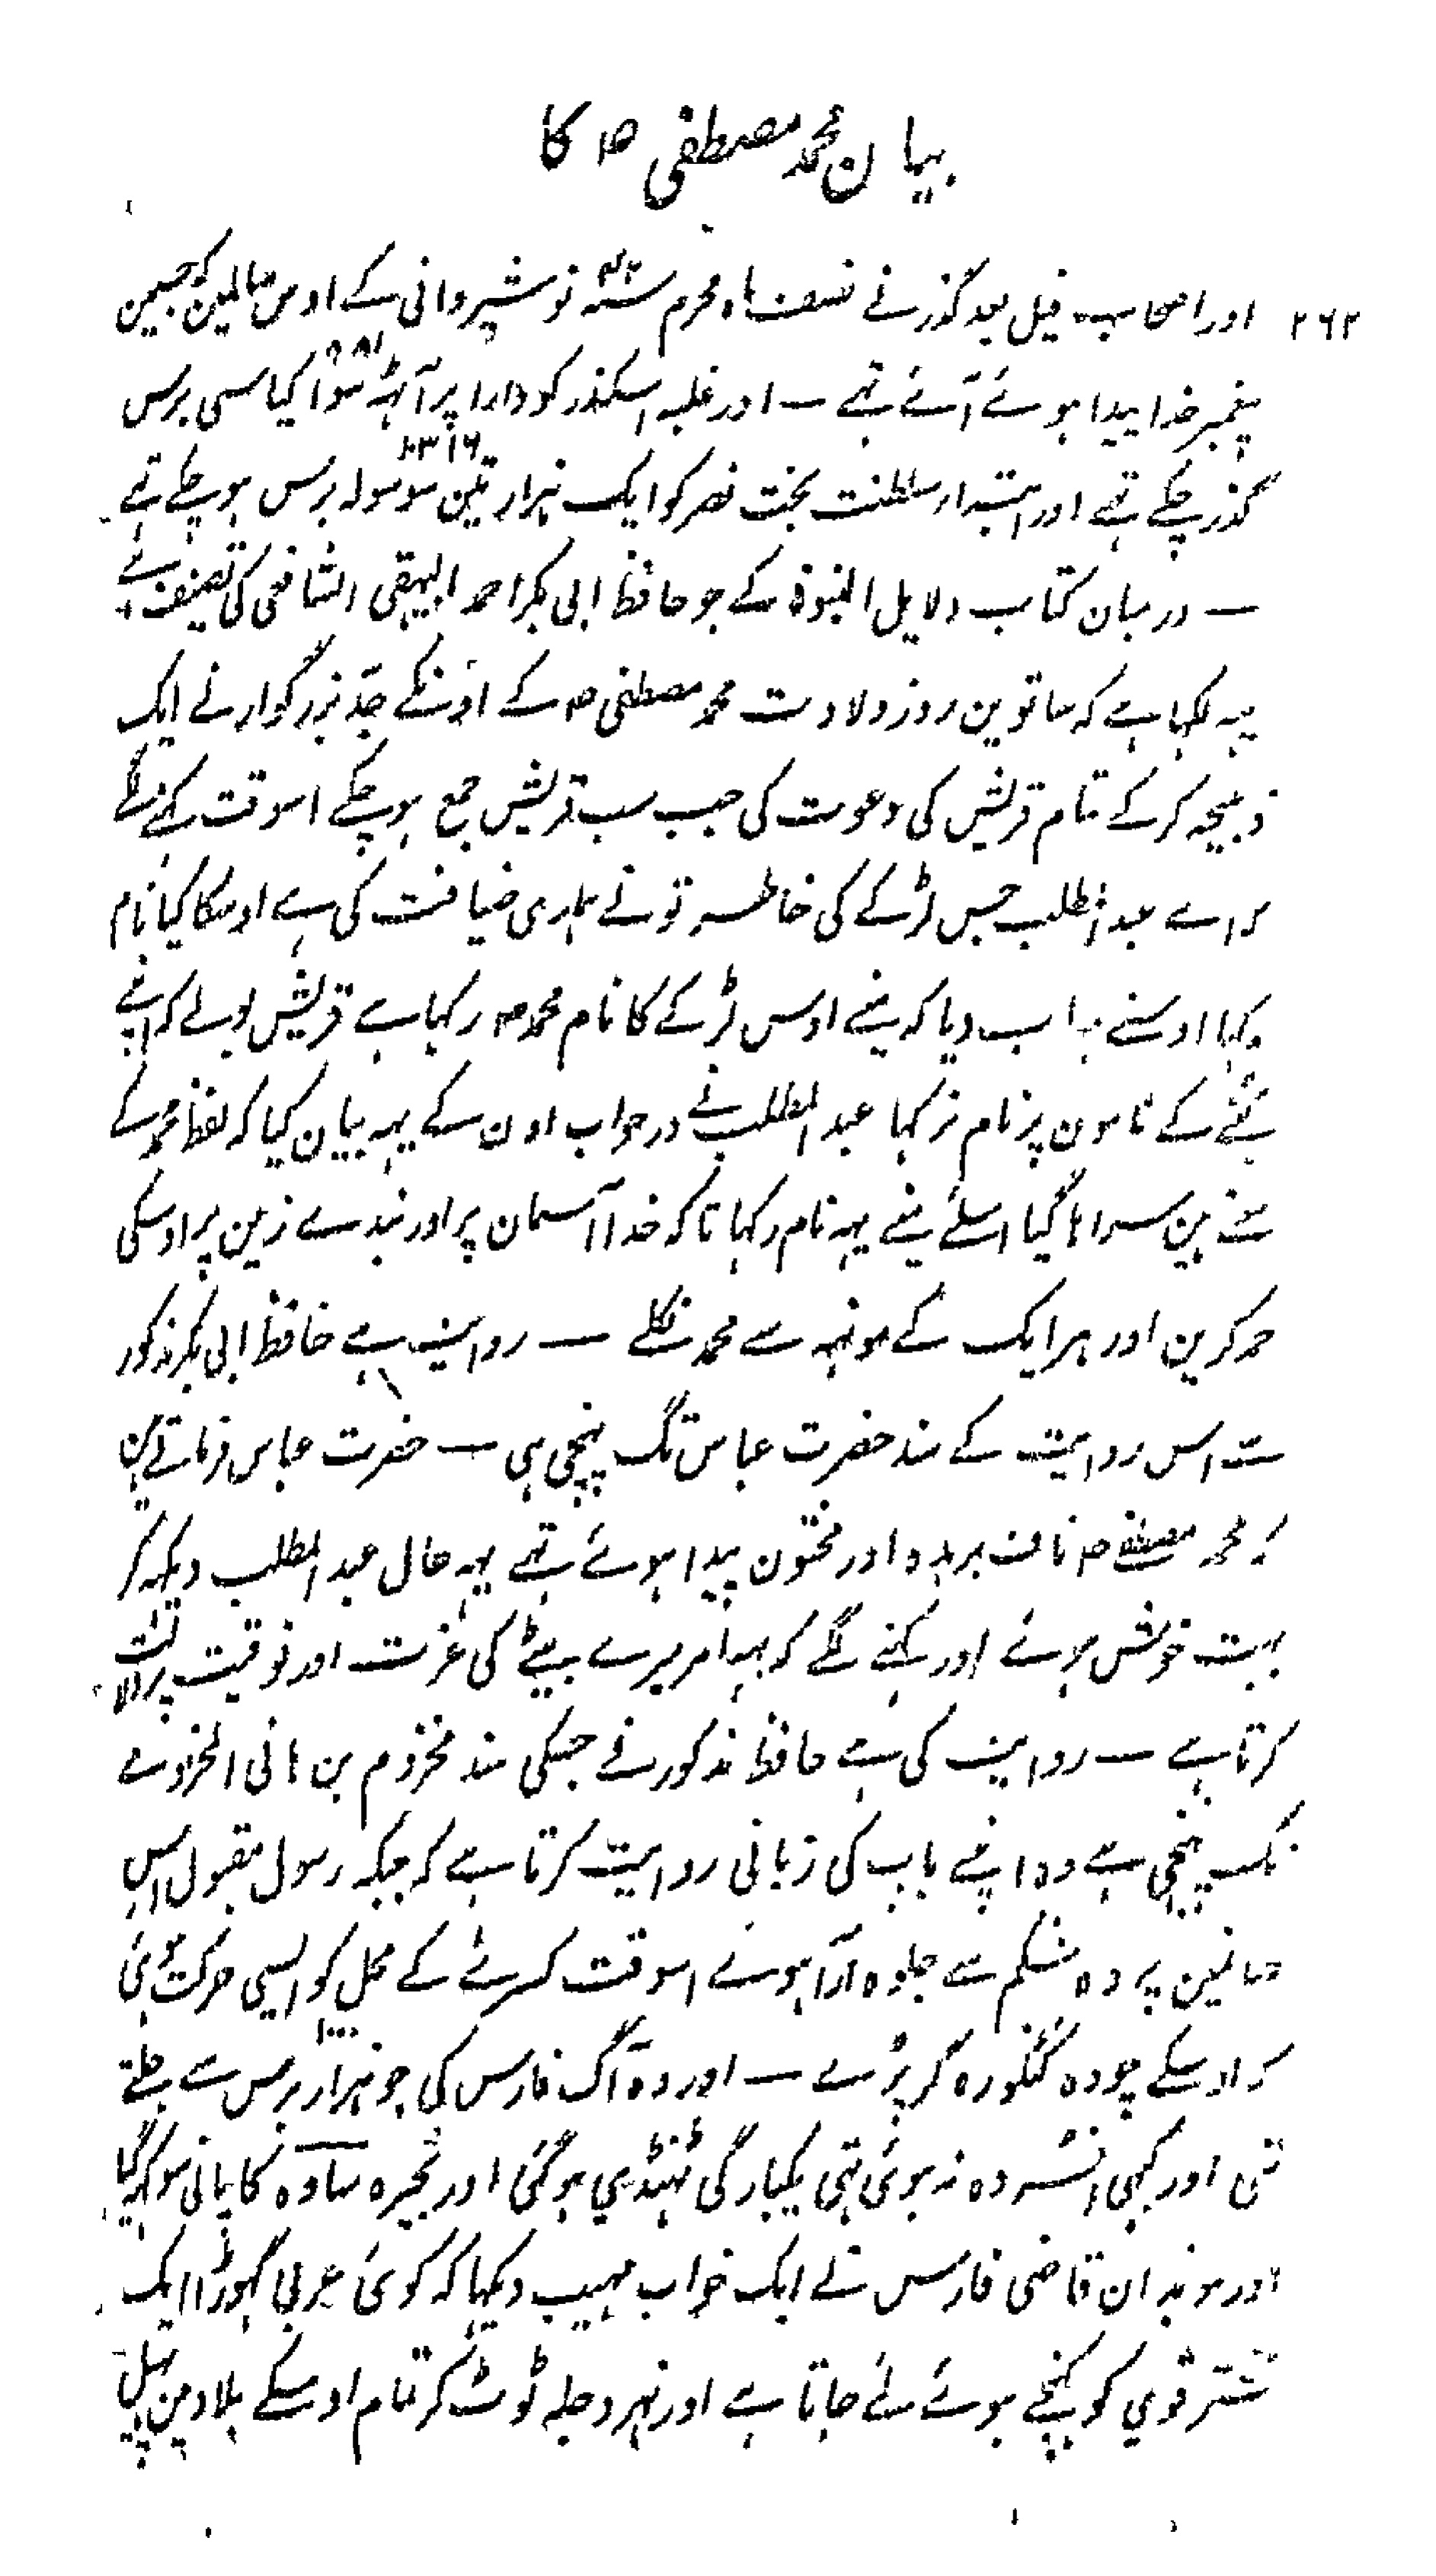 بیان محمد مصطفی ص کا
۲۶۲ اور اصحاب فیل بعد گذرنے نصف ماہ محرم سنہ ۴۲ نوشیروانی کے اوس سالمین کہ جسمین
پیغمبر خدا پیدا ہوئے آئے تہے — اور غلبہ اسکندر کو دارا پر آٹہہ سو اکیاسی ۸۸۱ برس
گذر چکے تہے اور ابتدار سلطنت بخت نصر کو ایک ہزار تین سو سولہ ۱۳۱۶ برس ہو چکے تہے
— درمیان کتاب دلایل النبوة کے جو حافظ ابی بکر احمد البیہقی الشافعی کی تصنیف ہے
یہہ لکہا ہے کہ ساتوین روز ولادت محمد مصطفی ص کے اونکے جد بزرگوار نے ایک
ذبیحہ کر کے تمام قریش کی دعوت کی جب سب قریش جمع ہو چکے اسوقت کہنے لگے
کہ اے عبد المطلب جس لڑکے کی خاطر تو نے ہماری ضیافت کی ہے اوسکا کیا نام
رکہا اوسنے جواب دیا کہ مینے اوس لڑکے کا نام محمد ص رکہا ہے قریش بولے کہ اپنے
کنبے کے نامون پر نام نرکہا عبد المطلب نے در جواب اون کے یہہ بیان کیا کہ لفظ محمد کے
معنے ہین سراہا گیا اسلئے مینے یہہ نام رکہا تاکہ خدا آسمان پر اور بندے زمین پر اوسکی
حمد کرین اور ہر ایک کے مونہہ سے محمد نکلے — روایت ہے حافظ ابی بکر مذکور
سے اس روایت کے سند حضرت عباس تک پہنچی ہی — حضرت عباس فرماتے ہین
کہ محمد مصطفے ص ناف بریدہ اور مختون پیدا ہوئے تہے یہہ حال عبد المطلب دیکہہ کر
بہت خوش ہوئے اور کہنے لگے کہ یہہ امر میرے بیٹے کی عزت اور فوقیت پر دلالت
کرتا ہے — روایت کی ہے حافظ مذکور نے جسکی سند مخزوم بن ہانی المخزومے
تک پہنچی ہے وہ اپنے باپ کی زبانی روایت کرتا ہے کہ جبکہ رسول مقبول اس
جہانمین پردہ شکم سے جلوہ آرا ہوئے اسوقت کسرے کے محل کو ایسی حرکت ہوئی
کہ اوسکے چودہ کنگورہ گر پڑے — اور وہ آگ فارس کی جو ہزار ۱۰۰۰ برس سے جلتے
تہی اور کبہی افسردہ نہ ہوئی تہی یکبارگی ٹہنڈی ہو گئی اور بحیرہ ساوہ کا پانی سوکہہ گیا
اور موبدان قاضی فارس نے ایک خواب مہیب دیکہا کہ کوئی عربی گہوڑا ایک
شتر قوی کو کہنچے ہوئے لئے جاتا ہے اور نہر دجلہ ٹوٹ کر تمام اوسکے بلاد مین پہیل